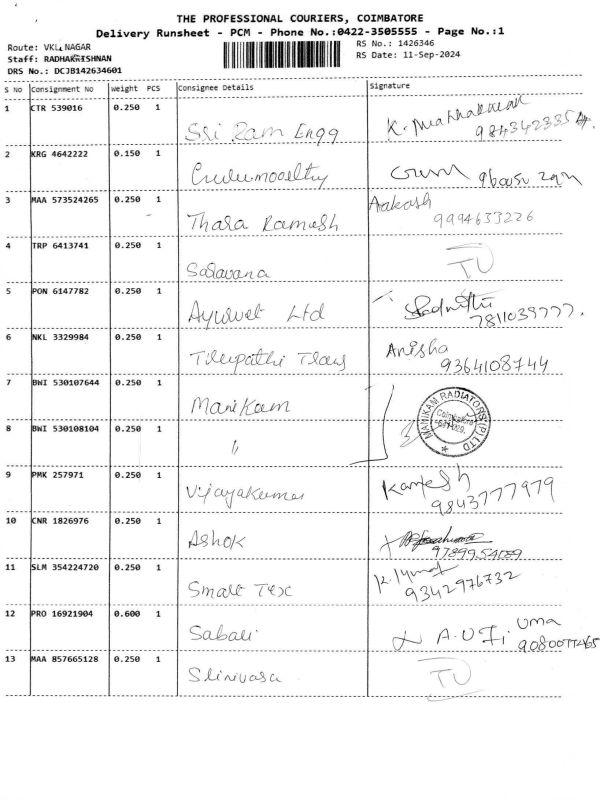 THE PROFESSIONAL COURIERS, COIMBATORE
Delivery Runsheet - PCM - Phone No.:0422-3505555 - Page No.:1
Route: VKL NAGAR
RS No.: 1426346
Staff: RADHAKRISHNAN
RS Date: 11-Sep-2024
DRS No.: DCJB142634601
S No Consignment No Weight PCS Consignee Details Signature
1 CTR 539016 0.250 1
Sri Ram Engg K.
2 KRG 4642222 0.150 1
3 MAA 573524265 0.250 1 Aakash
Thara Ramesh 9994633226
4 TRP 6413741 0.250 1
Saravana TU
5 PON 6147782 0.250 1
Ayurvet Ltd 7811039777.
6 NKL 3329984 0.250 1 Anisha
Tirupathi Trans 9364108744
7 BWI 530107644 0.250 1
Manikam MANIKAM RADIATORS (P) LTD
Coimbatore
8 BWI 530108104 0.250 1
"
9 PMK 257971 0.250 1
Vijayakumar Kamesh
9843777979
10 CNR 1826976 0.250 1
Ashok
11 SLM 354224720 0.250 1
Smart Tex 9342976732
12 PRO 16921904 0.600 1 Uma
Sabari
13 MAA 857665128 0.250 1
Srinivasa TU